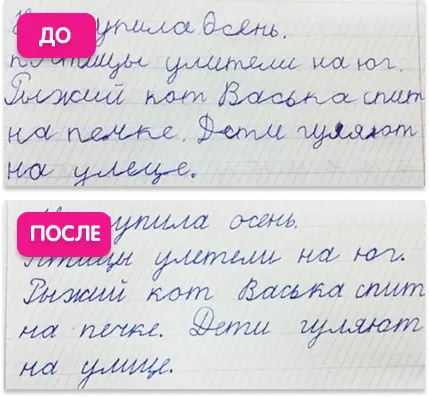 ДО
осень.
птицы улители на юг.
Рыжий кот Васька спит
на пемке. Дети гуляют
на улеце.
ПОСЛЕ
осень.
Птицы улетели на юг.
Рыжий кот Васька спит
на печке. Дети гуляют
на улице.